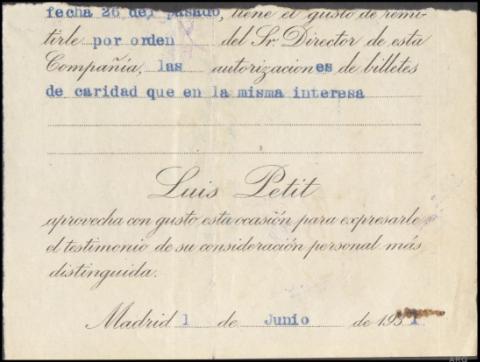 fecha 26 del pasado, tiene el gusto de remi-
tirle por orden del Sr. Director de esta
Compañía, las autorizaciones de billetes
de caridad que en la misma interesa
Luis Petit
aprovecha con gusto esta ocasión para expresarle
el testimonio de su consideración personal más
distinguida.
Madrid 1 de Junio de 1931
ARG